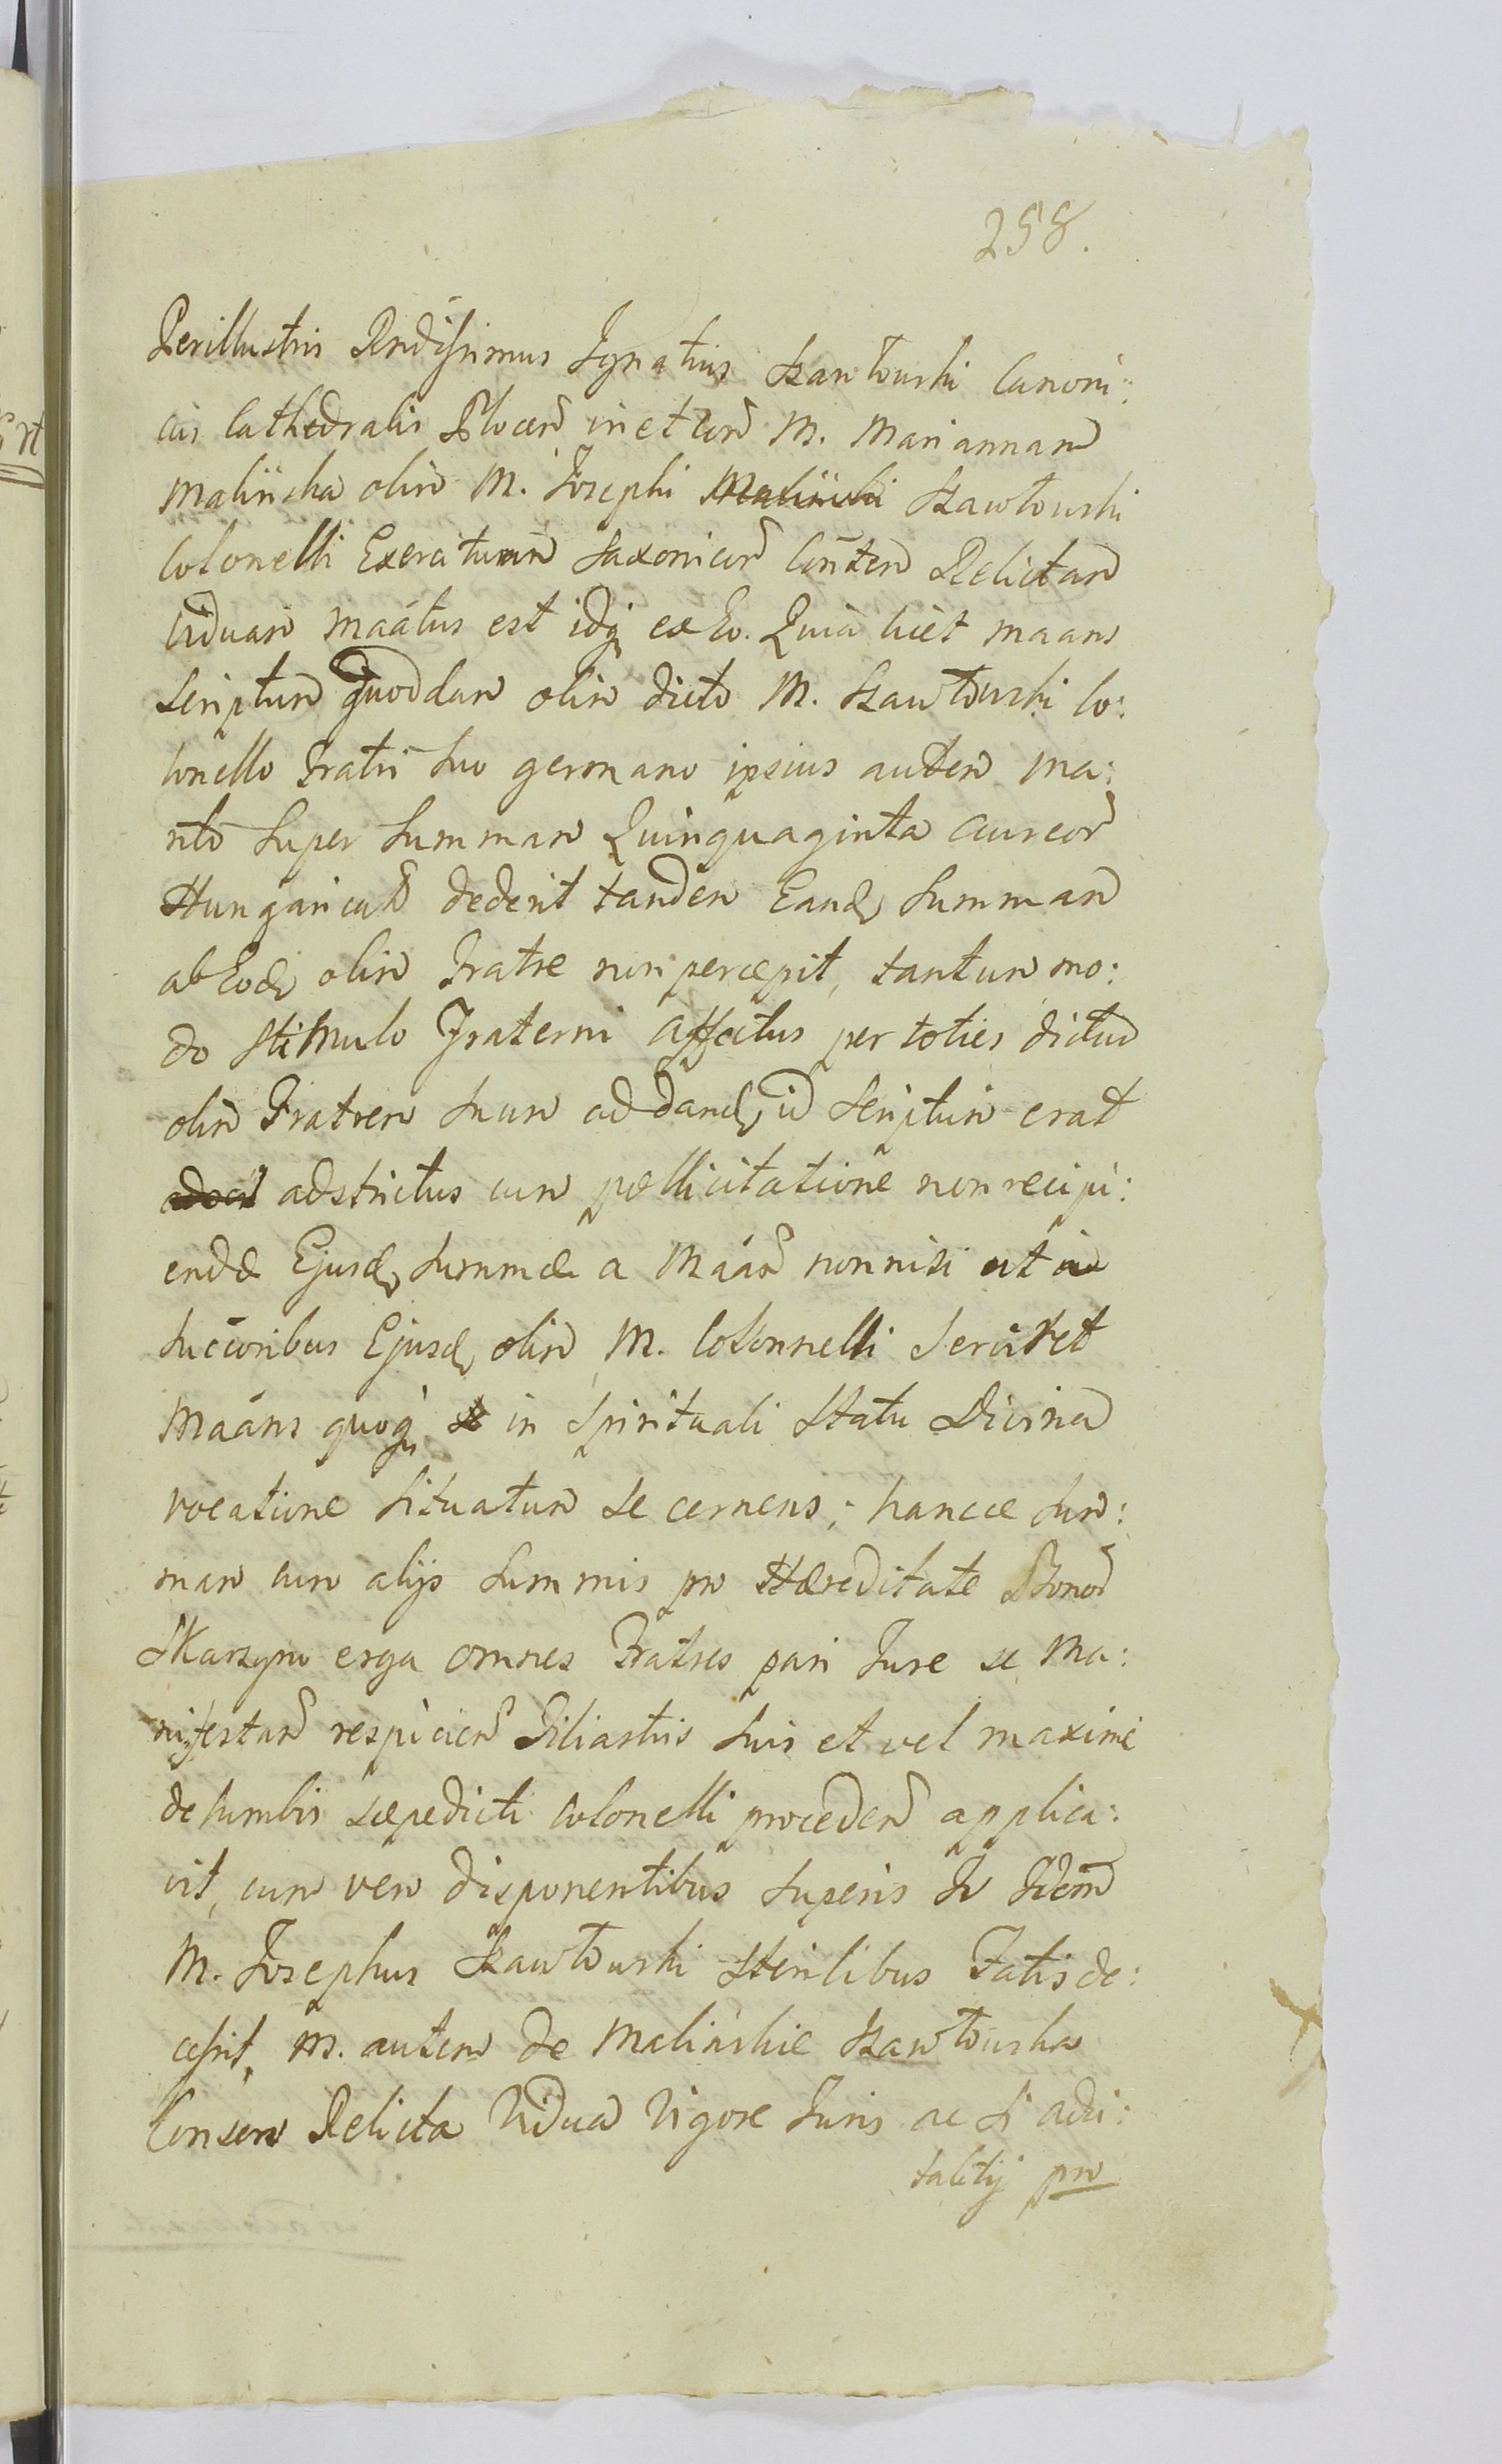 258.
Perillustris Rndissimus Ignatius Szawłowski Canoni:
cus Cathedralis Plocen in et con M. Mariannam
Malińska olim M. Josephi Maliński Szawłowski
Colonelli Exercituum Saxonicor Consten Relictam
Viduam maātus est idq ex Eo. Quia licet maans
Scriptum quoddam olim dicto M. Szawłowski Co:
lonello Fratri Suo germano ipsius autem ma:
rito Super Summam Quinquaginta aureor
Hungaricalr dederit tandem Eand Summam
ab Eod olim Fratre non percepit, tantum mo:
do Stimulo Fraterni affectus per toties dictum
olim Fratrem Suum ad dand id Scriptum erat
adstrictus cum pollicitatione non recipi:
endæ Ejusd Summæ a Māan non nisi ut in
Succōribus Ejusd olim M. Colonnelli Serviret
Māans quoq in Spirituali Statu Divina
vocatione Situatum se cernens; hancce Sum:
mam cum alijs Summis pro Hæreditate Bonor
Skarzyn erga omnes Fratres pari Jure se ma:
nifestan respicien Filiastris Suis et vel maxime
de lumbis sæpedicti Colonelli proceden applica:
vit, cum vero disponentibus Superis Idem
M. Josephus Szawłowski Sterilibus Fatis de:
cessit, M. autem de Malińskie Szawłowska
Consors Relicta Vidua Vigore Juris ac Si advi:
talitij pro